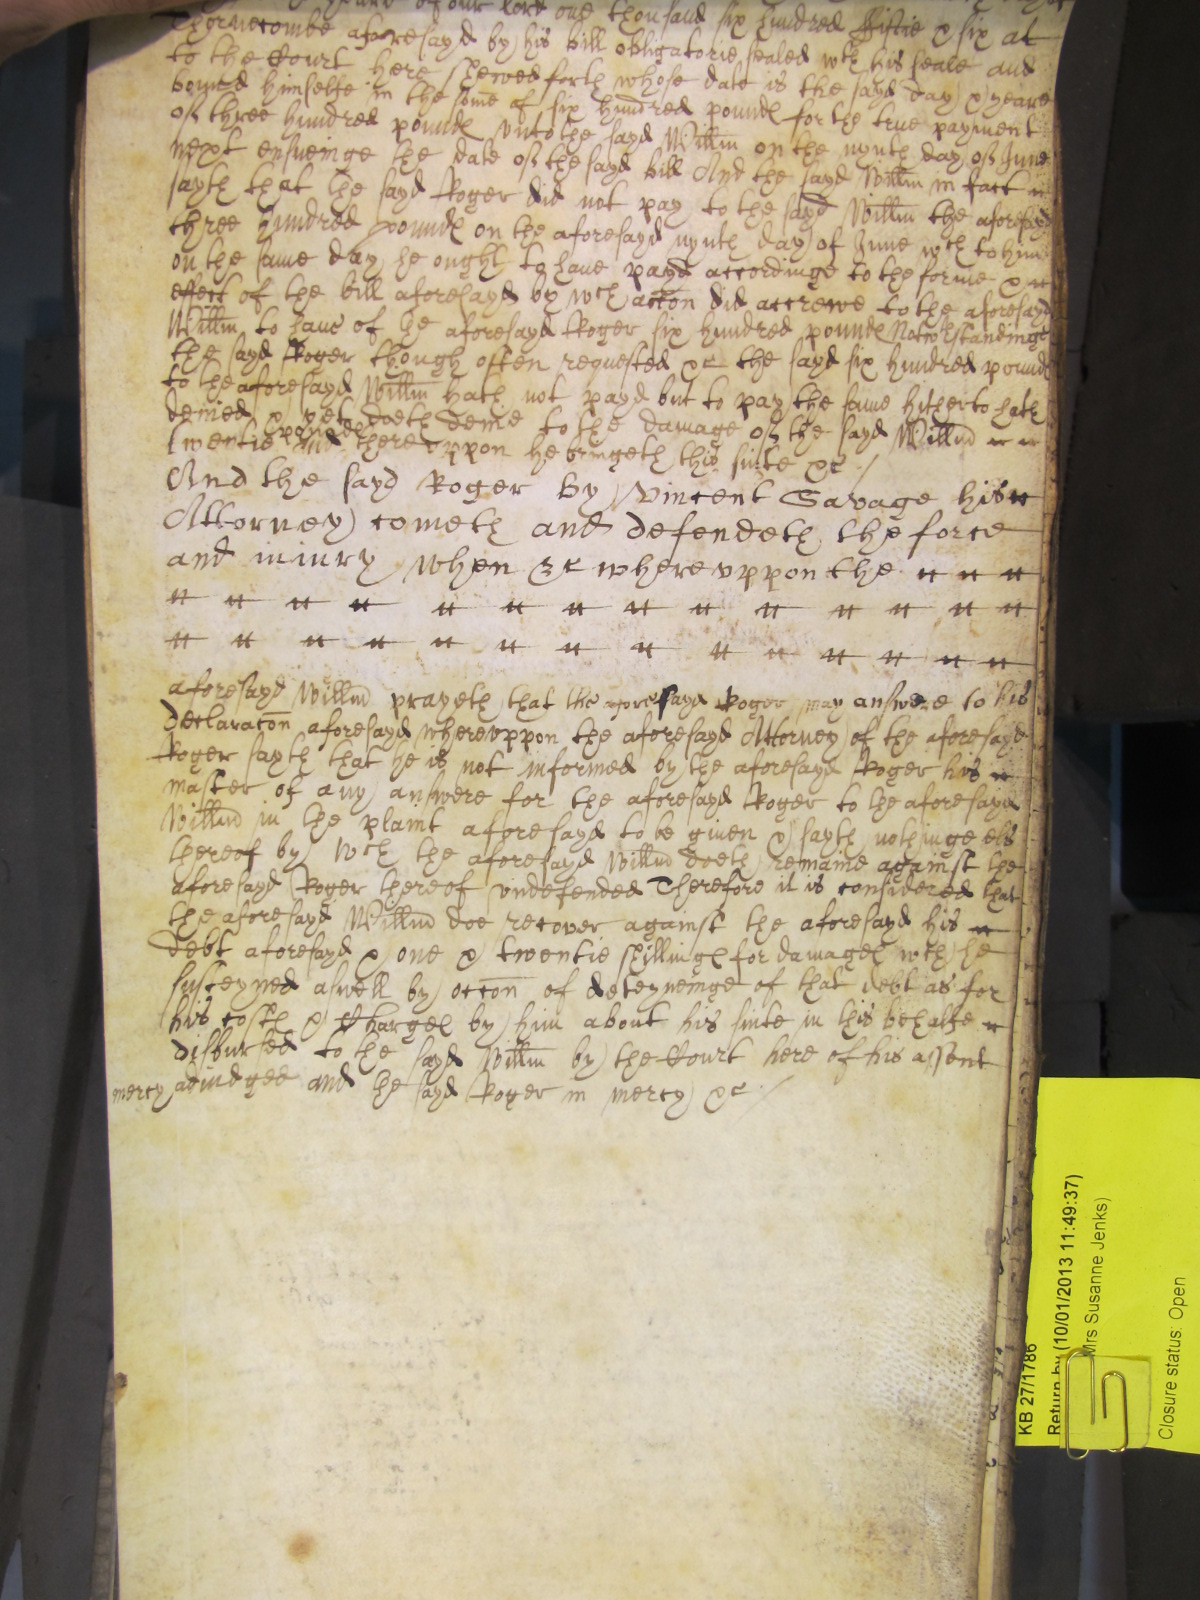 yeare of our Lord one thousand six hundred fiftie & six at
Thornecombe aforesayd by his bill obligatorie sealed wth his seale and
to the Court here shewed forth whose date is the sayd day & yeare
bound himselfe in the some of six hundred pounds for the true payment
of three hundred pounds unto the sayd Willm on the nynth day of June
next ensueinge the date of the sayd bill And the sayd Willm in fact
sayth that the sayd Roger did not pay to the sayd Willm the aforesayd
three hundred pounds on the aforesayd nynth day of June wch to him
on the same day he ought to have payd accordinge to the forme &
effect of the bill aforesayd by wch accon did accrewe to the aforesayd
Willm to have of the aforesayd Roger six hundred pounds Notwthstandinge
the sayd Roger though often requested &c the sayd six hundred pounds
to the aforesayd Willm hath not payd but to pay the same hitherto hath
denied & yet doeth denie to the damage of the sayd Willm
twentie pounds And thereuppon he bringeth this suite &c /
And the sayd Roger by Vincent Savage his
Attorney cometh and defendeth the force
and iniury when &c whereuppon the
aforesayd Willm prayeth that the aforesayd Roger may answere to his
declaracon aforesayd whereuppon the aforesayd Attorney of the aforesayd
Roger sayth that he is not informed by the aforesayd Roger his
master of any answere for the aforesayd Roger to the aforesayd
Willm in the plaint aforesayd to be given & sayth nothinge els
thereof by wch the aforesayd Willm doeth remaine against the
aforesayd Roger thereof undefended Therefore it is considered that
the aforesayd Willm doe recover against the aforesayd his
debt aforesayd & one & twentie shillings for damages wch he
susteyned aswell by occon of deteyneinge of that debt as for
his costs & Charges by him about his suite in this behalfe
disbursed to the sayd Willm by the Court here of his assent
mercy adiudged and the sayd Roger in mercy &c /
KB 27/1786
Return by (10/01/2013 11:49:37)
Mrs Susanne Jenks)
Closure status: Open